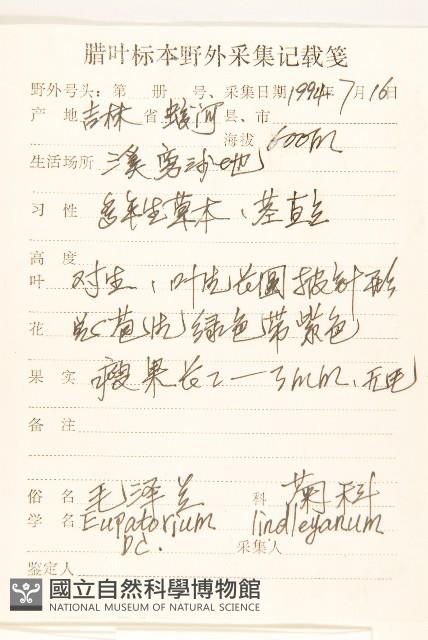 腊叶标本野外采集记载笺
野外号头：第 册 号、采集日期1994年7月16日
产 地 吉林 省 蛟河 县、市
海拔 600m
生活场所 溪旁沙地
习 性 多年生草本、茎直立
高 度
叶 对生、叶片 披针形
花 总苞片绿色带紫色
果 实 瘦果长2—3mm、无毛
备 注
俗 名 毛泽兰 科 菊科
学 名 Eupatorium lindleyanum
DC. 采集人
鉴定人
國立自然科學博物館
NATIONAL MUSEUM OF NATURAL SCIENCE